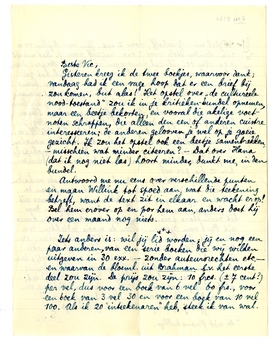 Beste Vic,
Gisteren kreeg ik de twee boekjes, waarvoor dank;
vandaag had ik een vage hoop dat er een brief bij
zou komen, but alas! Het opstel over „de cultureele
nood-toestand” zou ik in je kritieken-bundel opnemen,
maar een beetje bekorten, en vooral die akelige voet-
noten schrappen, die alleen den een of anderen cuistre
interesseeren; de anderen gelooven je wel op je goeie
gezicht. Ik zou het opstel ook een beetje samentrekken
- misschien wat minder citeeren? - dat over Hana
(dat ik nog niet las) hoort minder, dunkt me, in den
bundel.
Antwoord me nu eens over verschillende punten
en maan Willink tot spoed aan, wat die teekening
betreft, want de text zit in elkaar en wacht erop!
Bel hem erover op en por hem aan, anders doet hij
over een maand nog niets.
Iets anders is: wil jij lid worden, jij en nog een
paar anderen, van een serie boeken die wij wilden
uitgeven in 30 exx. - zonder auteursrechten etc. -
en waarvan de bloeml. uit Brahman I in het eerste
deel zou zijn. De prijs zou zijn: 10 frs. (± 7 cent!)
per vel, dus voor een boek van 6 vel 60 frs, voor
een boek van 3 vel 30 en voor een boek van 10 vel
100. Als ik 20 inteekenaren heb, steek ik van wal.